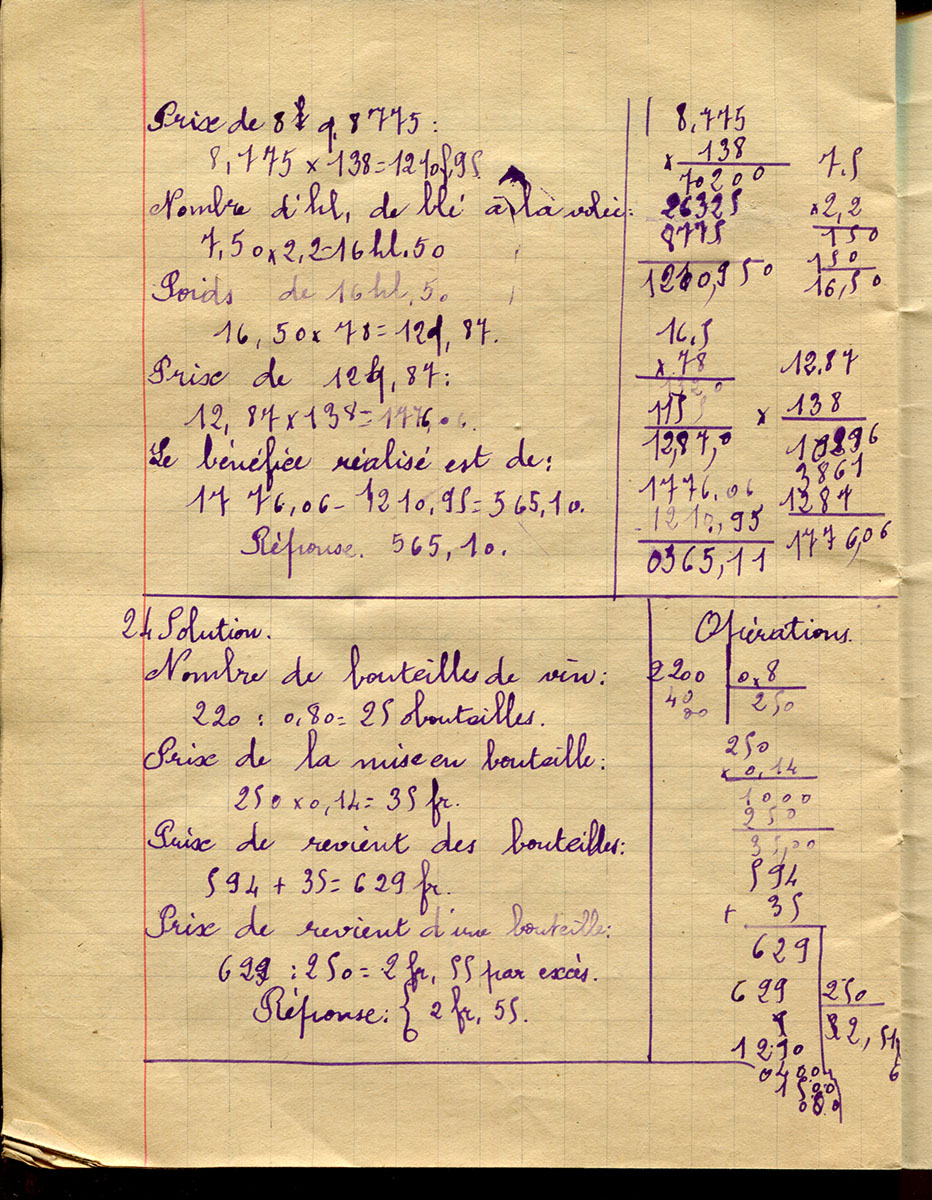 Prix de 8 q, 8775 :
8,775 × 138 = 1210f,95
Nombre d'hl, de blé à la volée :
7,50 × 2,2 = 16 hl. 50
Poids de 16 hl, 50
16, 50 × 78 = 12q, 87.
Prix de 12q, 87 :
12, 87 × 138 = 1776,06.
Le bénéfice réalisé est de :
1776,06 - 1210,95 = 565,10.
Réponse. 565,10.
8,775
× 138
70200
26325
8775
1210,950
7.5
× 2,2
150
150
16,50
16.5
× 78
1320
115
12,87,0
12.87
× 138
10296
3861
1287
1776,06
1776,06
- 1210,95
0565,11
24 Solution.
Nombre de bouteilles de vin :
220 : 0,80 = 250 bouteilles.
Prix de la mise en bouteille :
250 × 0,14 = 35 fr.
Prix de revient des bouteilles :
594 + 35 = 629 fr.
Prix de revient d'une bouteille :
629 : 250 = 2 fr, 55 par excès.
Réponse : { 2 fr, 55.
Opérations.
2200 0,8
40 250
00
250
× 0,14
1000
250
35,00
594
+ 35
629
629 250
1290 2,51
0400 6
1500
000